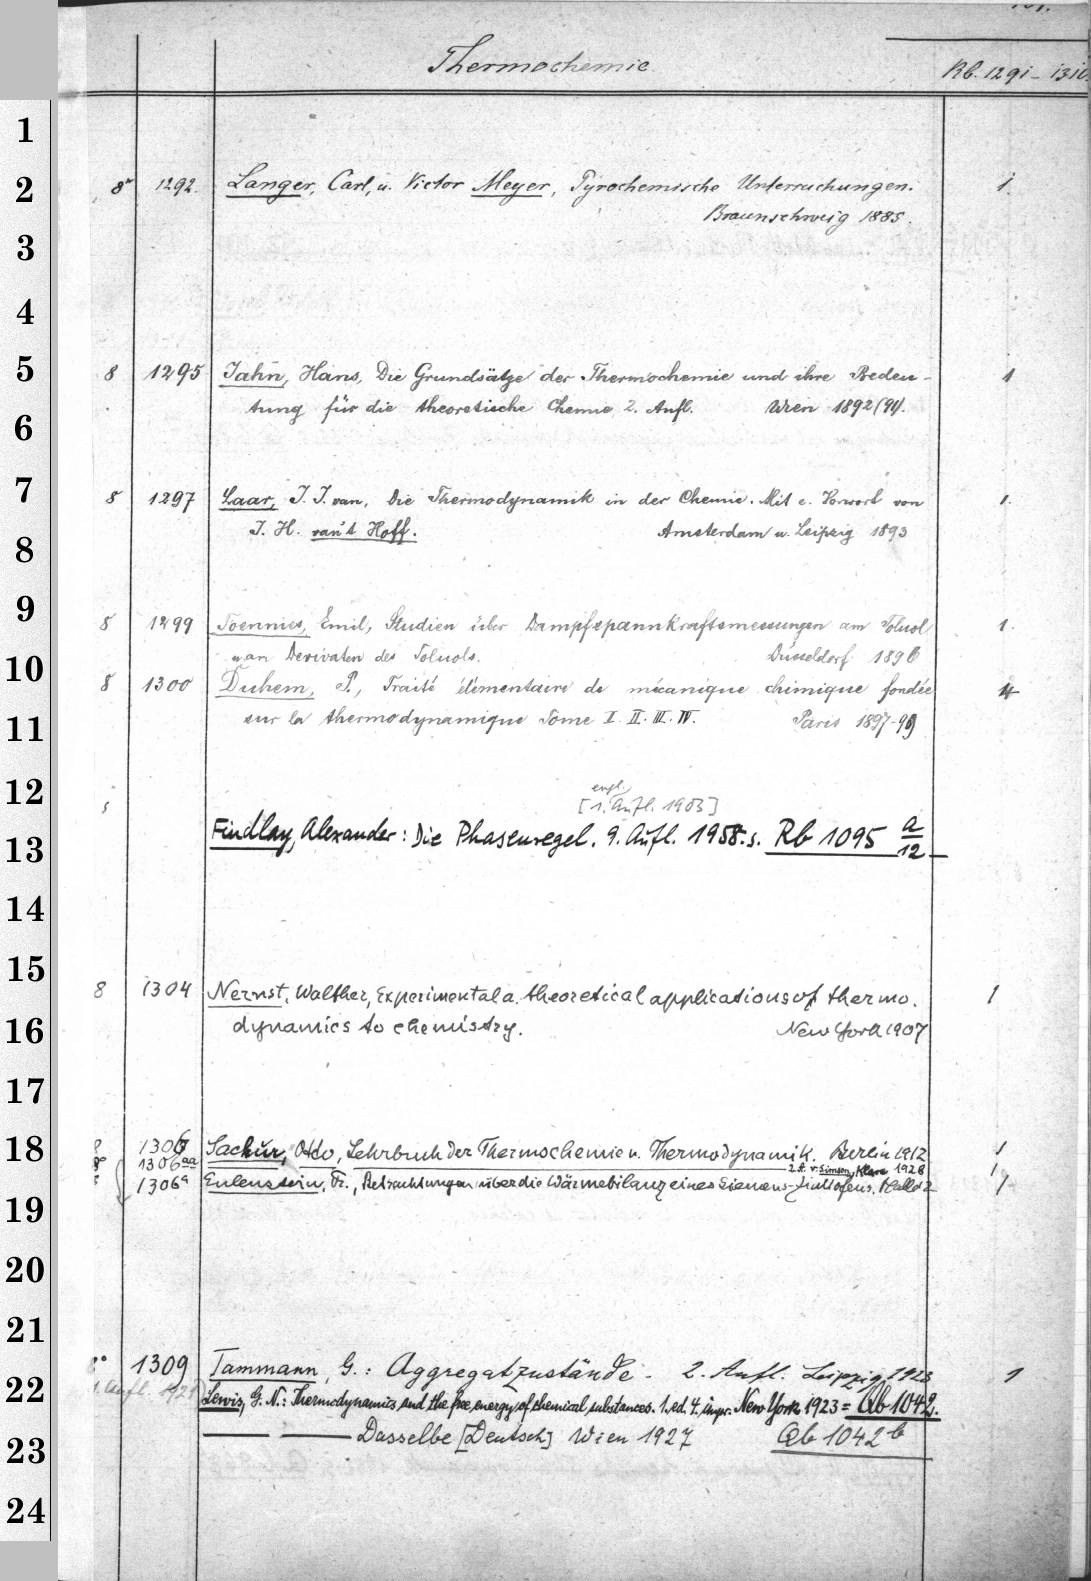 Thermochemie
Rb. 1291-1310
1
2 8° 1292. Langer, Carl, u. Victor Meyer, Pyrochemische Untersuchungen. 1.
Braunschweig 1885.
3
4
5 8 1295 Jahn, Hans, Die Grundsätze der Thermochemie und ihre Bedeu- 1
6 tung für die theoretische Chemie 2. Aufl. Wien 1892
7 8 1297 Laar, J. J. van, Die Thermodynamik in der Chemie. Mit e. Vorwort von 1.
8 J. H. van't Hoff. Amsterdam u. Leipzig 1893
9 8 1299 Toennies, Emil, Studien über Dampfspannkraftsmessungen am Toluol 1.
u an Derivaten des Toluols. Düsseldorf 1896
10 8 1300 Duhem, P., Traité élémentaire de mécanique chimique fondée 4
11 sur la thermodynamique Tome I. II. III. IV. Paris 1897-99
12 engl.
[1. Aufl. 1903]
13 Findlay, Alexander: Die Phasenregel. 9. Aufl. 1958. s. Rb 1095 a/12
14
15 8 1304 Nernst, Walther, Experimental a. theoretical applications of thermo- 1
16 dynamics to chemistry. New York 1907
17
18 8 1306 Sackur, Otto, Lehrbuch der Thermochemie u. Thermodynamik. Berlin 1912 1
1306aa 2. A. v. Simson, Klara 1928 1
1306a Eulenstein, Fr., Betrachtungen über die Wärmebilanz eines Siemens- 1
19
20
21
22 8° 1309 Tammann, G.: Aggregatzustände. 2. Aufl. Leipzig 1923 1
1. Aufl.
Lewis, G. N.: Thermodynamics and the free energy of chemical substances. 1. ed. 4. impr. New York 1923 = Qb 1042.
23 Dasselbe [Deutsch] Wien 1927 Qb 1042b
24